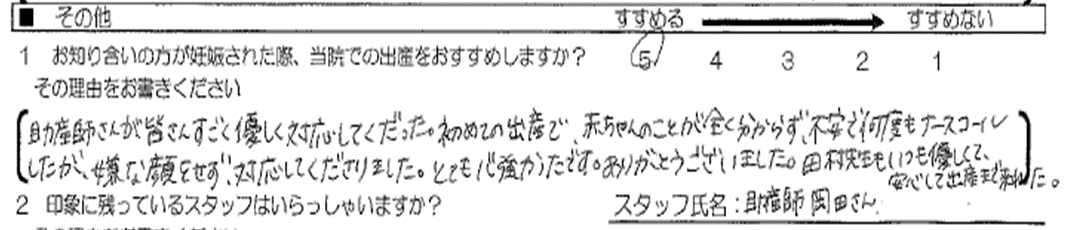 ■ その他 すすめる → すすめない
1 お知り合いの方が妊娠された際、当院での出産をおすすめしますか? 5 4 3 2 1
その理由をお書きください
助産師さんが皆さんすごく優しく対応してくだった。初めての出産で、赤ちゃんのことが全く分からず、不安で何度もナースコール
したが、嫌な顔をせず、対応してくださりました。とても心強かったです。ありがとうございました。田村先生もいつも優しくて、
安心して出産まで来れた。
2 印象に残っているスタッフはいらっしゃいますか? スタッフ氏名:助産師 岡田さん